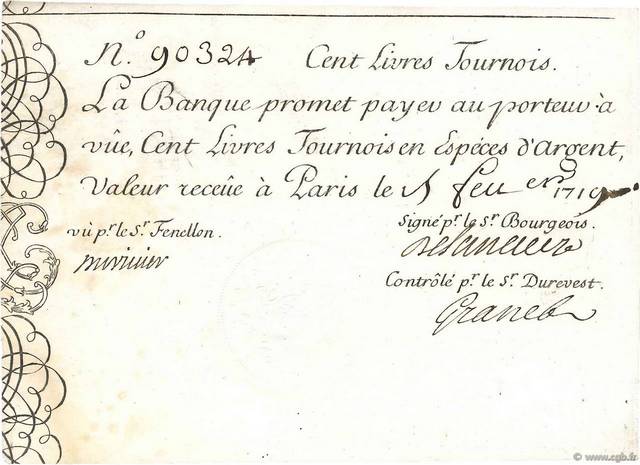 N.º 90324 Cent Livres Tournois.
La Banque promet payer au porteur à
vûe, Cent Livres Tournois en Espéces d'Argent,
valeur receüe à Paris le feu 1719
vû p.r le S.r Fenellon.
Signé p.r le S.r Bourgeois.
Contrôlé p.r le S.r Durevest.
Granet
© www.cgb.fr